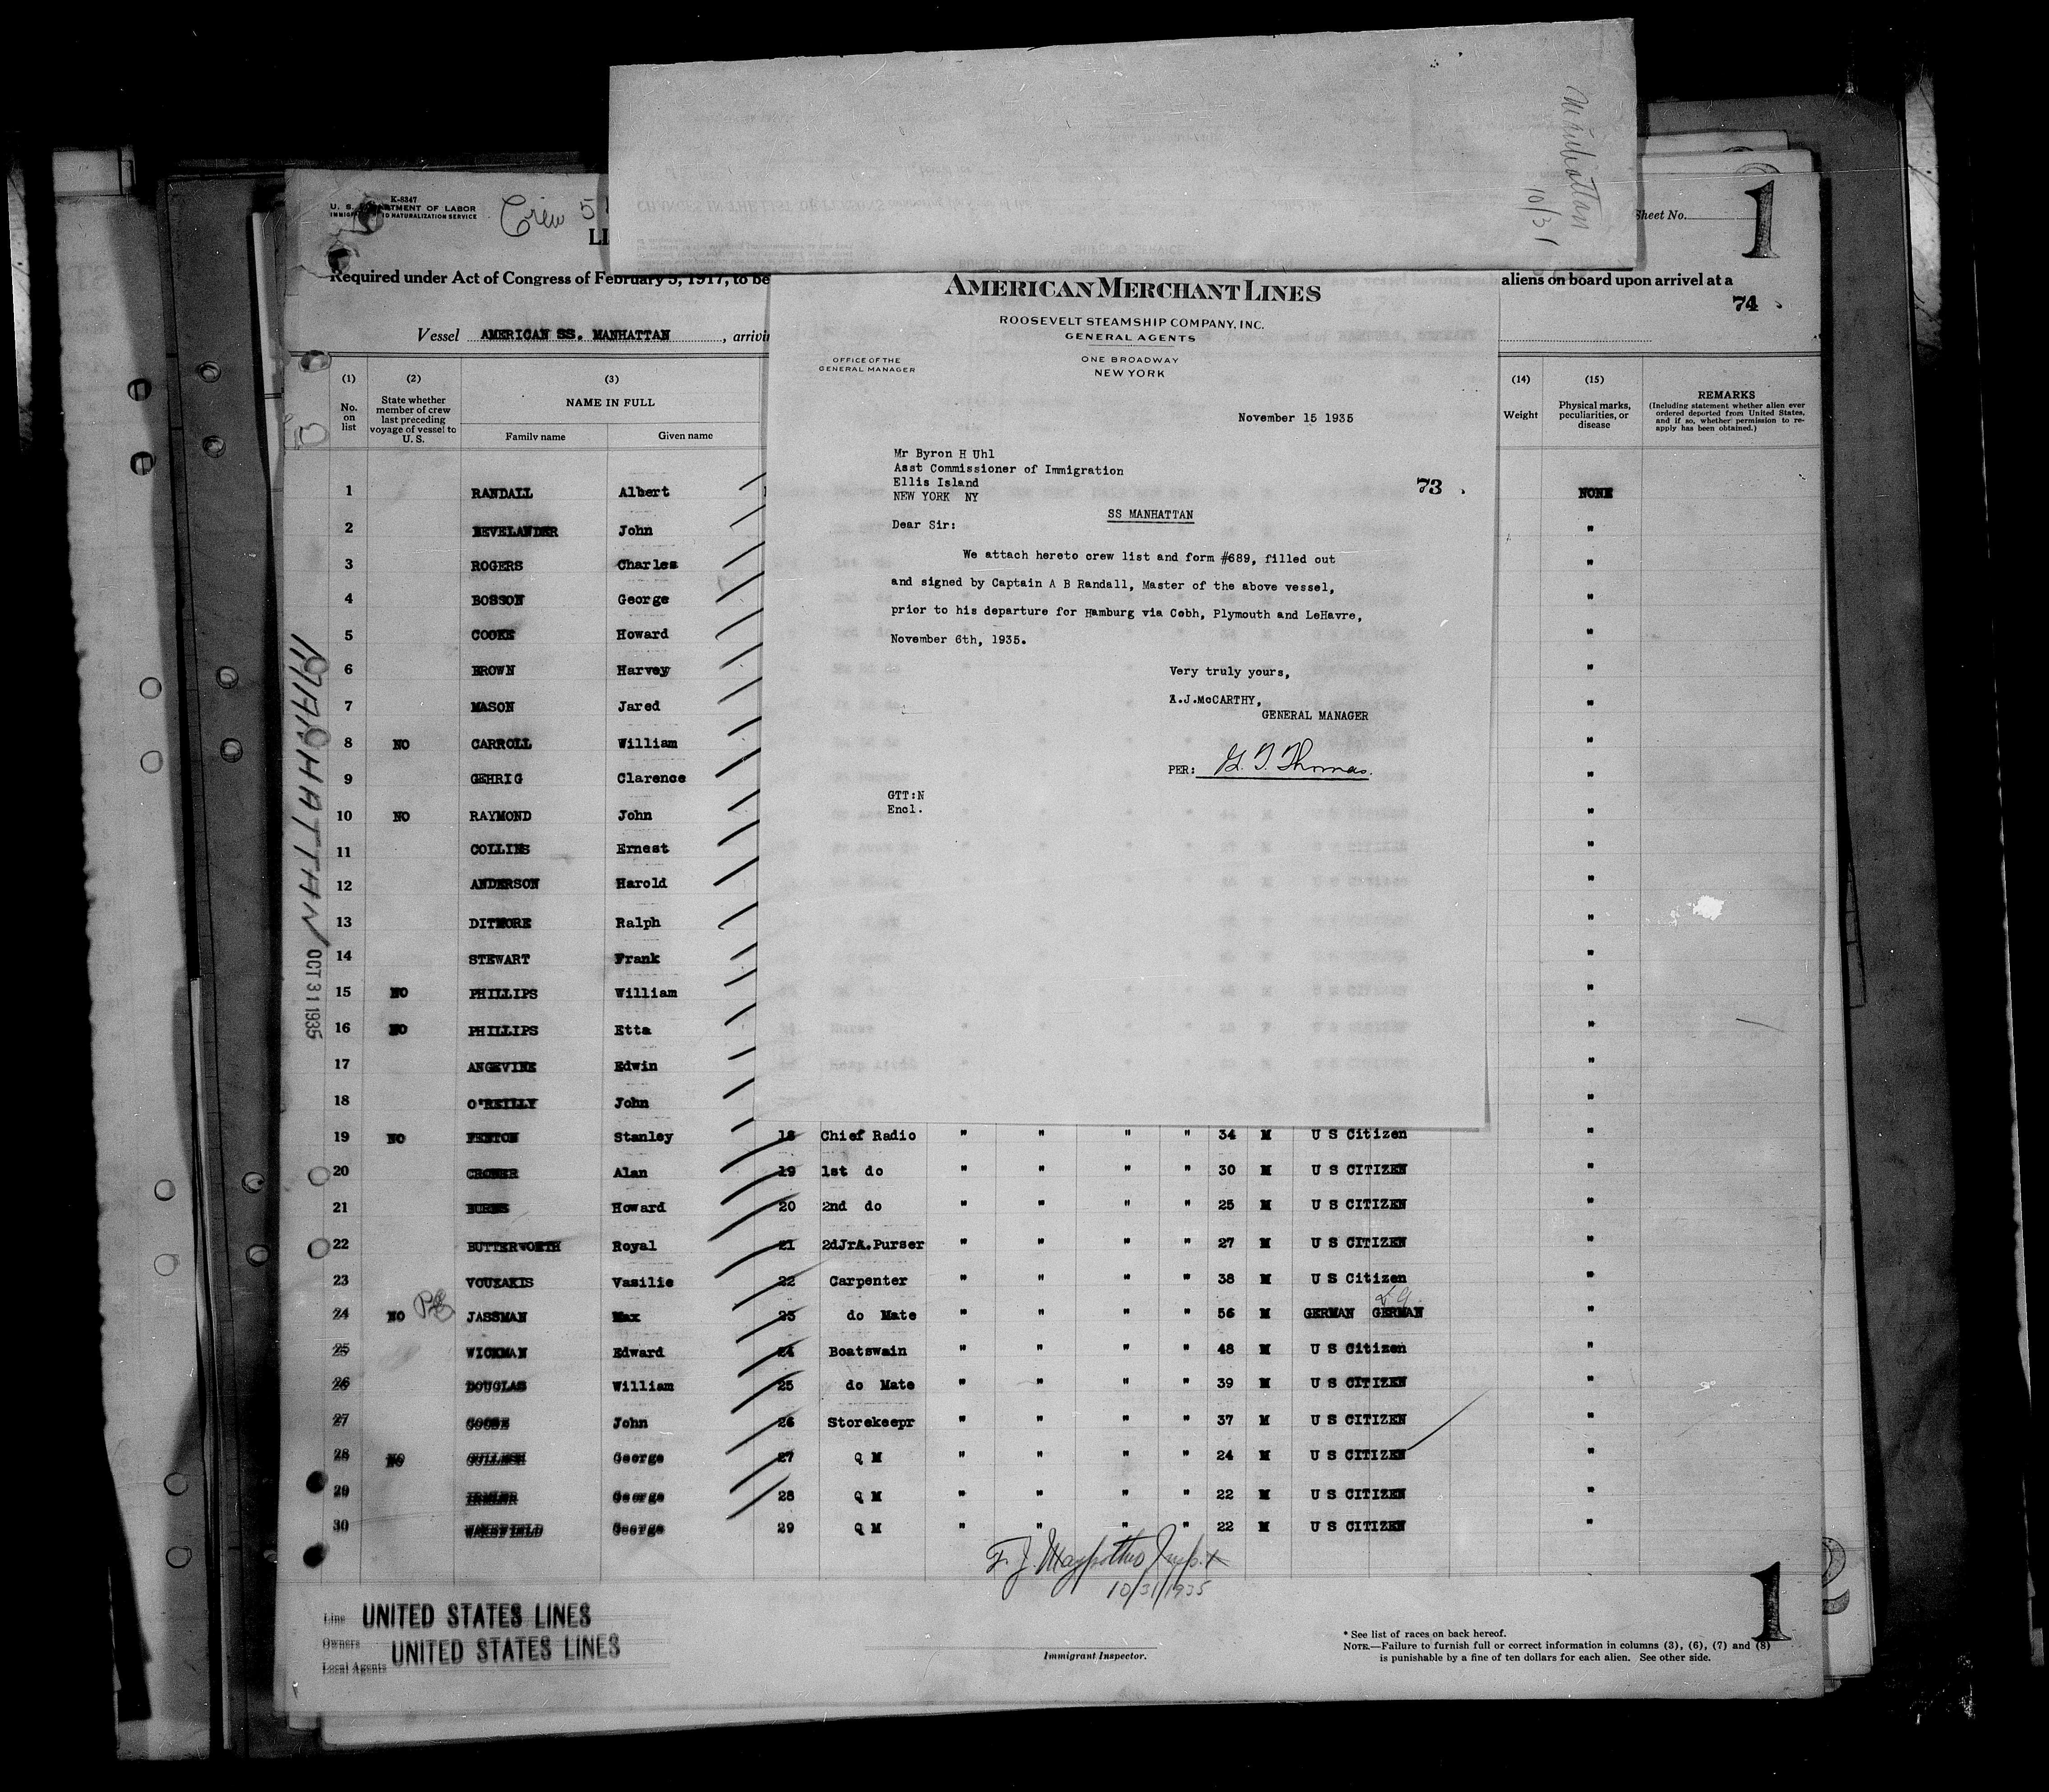 Manhattan
10/31
K-8347
U. S. DEPARTMENT OF LABOR
IMMIGRATION AND NATURALIZATION SERVICE
Crew 5
LI
Sheet No.
1
Required under Act of Congress of February 5, 1917, to be
aliens on board upon arrival at a
74
Vessel AMERICAN SS. MANHATTAN, arrivin
(1) (2) (3) (14) (15)
No. on list
State whether member of crew last preceding voyage of vessel to U. S.
NAME IN FULL
Family name Given name
Weight
Physical marks, peculiarities, or disease
REMARKS
(Including statement whether alien ever ordered deported from United States, and if so, whether permission to re-apply has been obtained.)
AMERICAN MERCHANT LINES
ROOSEVELT STEAMSHIP COMPANY, INC.
GENERAL AGENTS
OFFICE OF THE
GENERAL MANAGER
ONE BROADWAY
NEW YORK
November 15 1935
Mr Byron H Uhl
Asst Commissioner of Immigration
Ellis Island
NEW YORK NY
73
SS MANHATTAN
Dear Sir:
We attach hereto crew list and form #689, filled out
and signed by Captain A B Randall, Master of the above vessel,
prior to his departure for Hamburg via Cobh, Plymouth and LeHavre,
November 6th, 1935.
Very truly yours,
A.J.McCARTHY,
GENERAL MANAGER
PER: G. T. Thomas.
GTT:N
Encl.
MANHATTAN OCT 31 1935
1 RANDALL Albert NONE
2 BEVELANDER John "
3 ROGERS Charles "
4 BOSSON George "
5 COOKE Howard "
6 BROWN Harvey "
7 MASON Jared "
8 NO CARROLL William "
9 GEHRIG Clarence "
10 NO RAYMOND John "
11 COLLINS Ernest "
12 ANDERSON Harold "
13 DITMORE Ralph "
14 STEWART Frank "
15 NO PHILLIPS William "
16 NO PHILLIPS Etta "
17 ANGEVINE Edwin "
18 O'REILLY John "
19 NO FENTON Stanley 18 Chief Radio " " " " 34 M U S Citizen "
20 CROMER Alan 19 1st do " " " " 30 M U S CITIZEN "
21 BURNS Howard 20 2nd do " " " " 25 M U S CITIZEN "
22 BUTTERWORTH Royal 21 2dJrA.Purser " " " " 27 M U S CITIZEN "
23 VOUXAKIS Vasilie 22 Carpenter " " " " 38 M U S Citizen "
24 NO JASSMAN Max 23 do Mate " " " " 56 M GERMAN GERMAN "
25 WICKMAN Edward 24 Boatswain " " " " 48 M U S Citizen "
26 DOUGLAS William 25 do Mate " " " " 39 M U S CITIZEN "
27 GOOSE John 26 Storekeepr " " " " 37 M U S CITIZEN "
28 NO George 27 Q M " " " " 24 M U S CITIZEN "
29 George 28 Q M " " " " 22 M U S CITIZEN "
30 WAKEFIELD George 29 Q M " " " " 22 M U S CITIZEN "
10/31/1935
Line UNITED STATES LINES
Owners
Local Agents UNITED STATES LINES
Immigrant Inspector.
* See list of races on back hereof.
NOTE.—Failure to furnish full or correct information in columns (3), (6), (7) and (8)
is punishable by a fine of ten dollars for each alien. See other side.
1
2